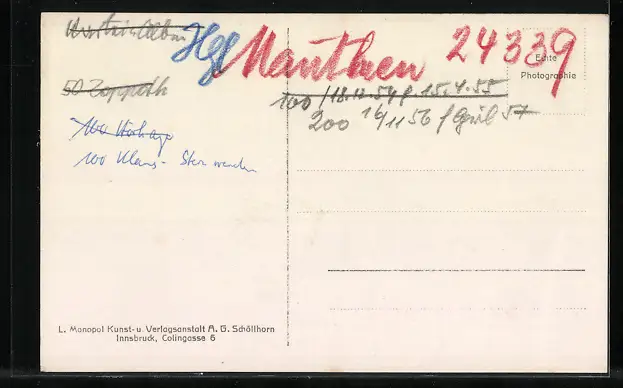 Hgl Mauthen 24339
50 Zoppoth
Echte
Photographie
100 / 18.12.54 f. 15.4.55
200 16/11 56 f April 57
100
100 Klaus-
L. Monopol Kunst- u. Verlagsanstalt A. G. Schöllhorn
Innsbruck, Colingasse 6